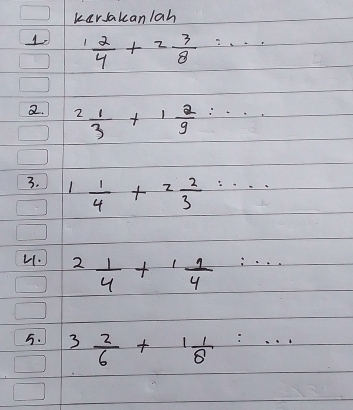 Kerjakanlah
1. 1 2/4 + 2 3/8 : ....
2. 2 1/3 + 1 2/9 : ....
3. 1 1/4 + 2 2/3 : ....
4. 2 1/4 + 1 1/4 : ....
5. 3 2/6 + 1 1/8 : ...